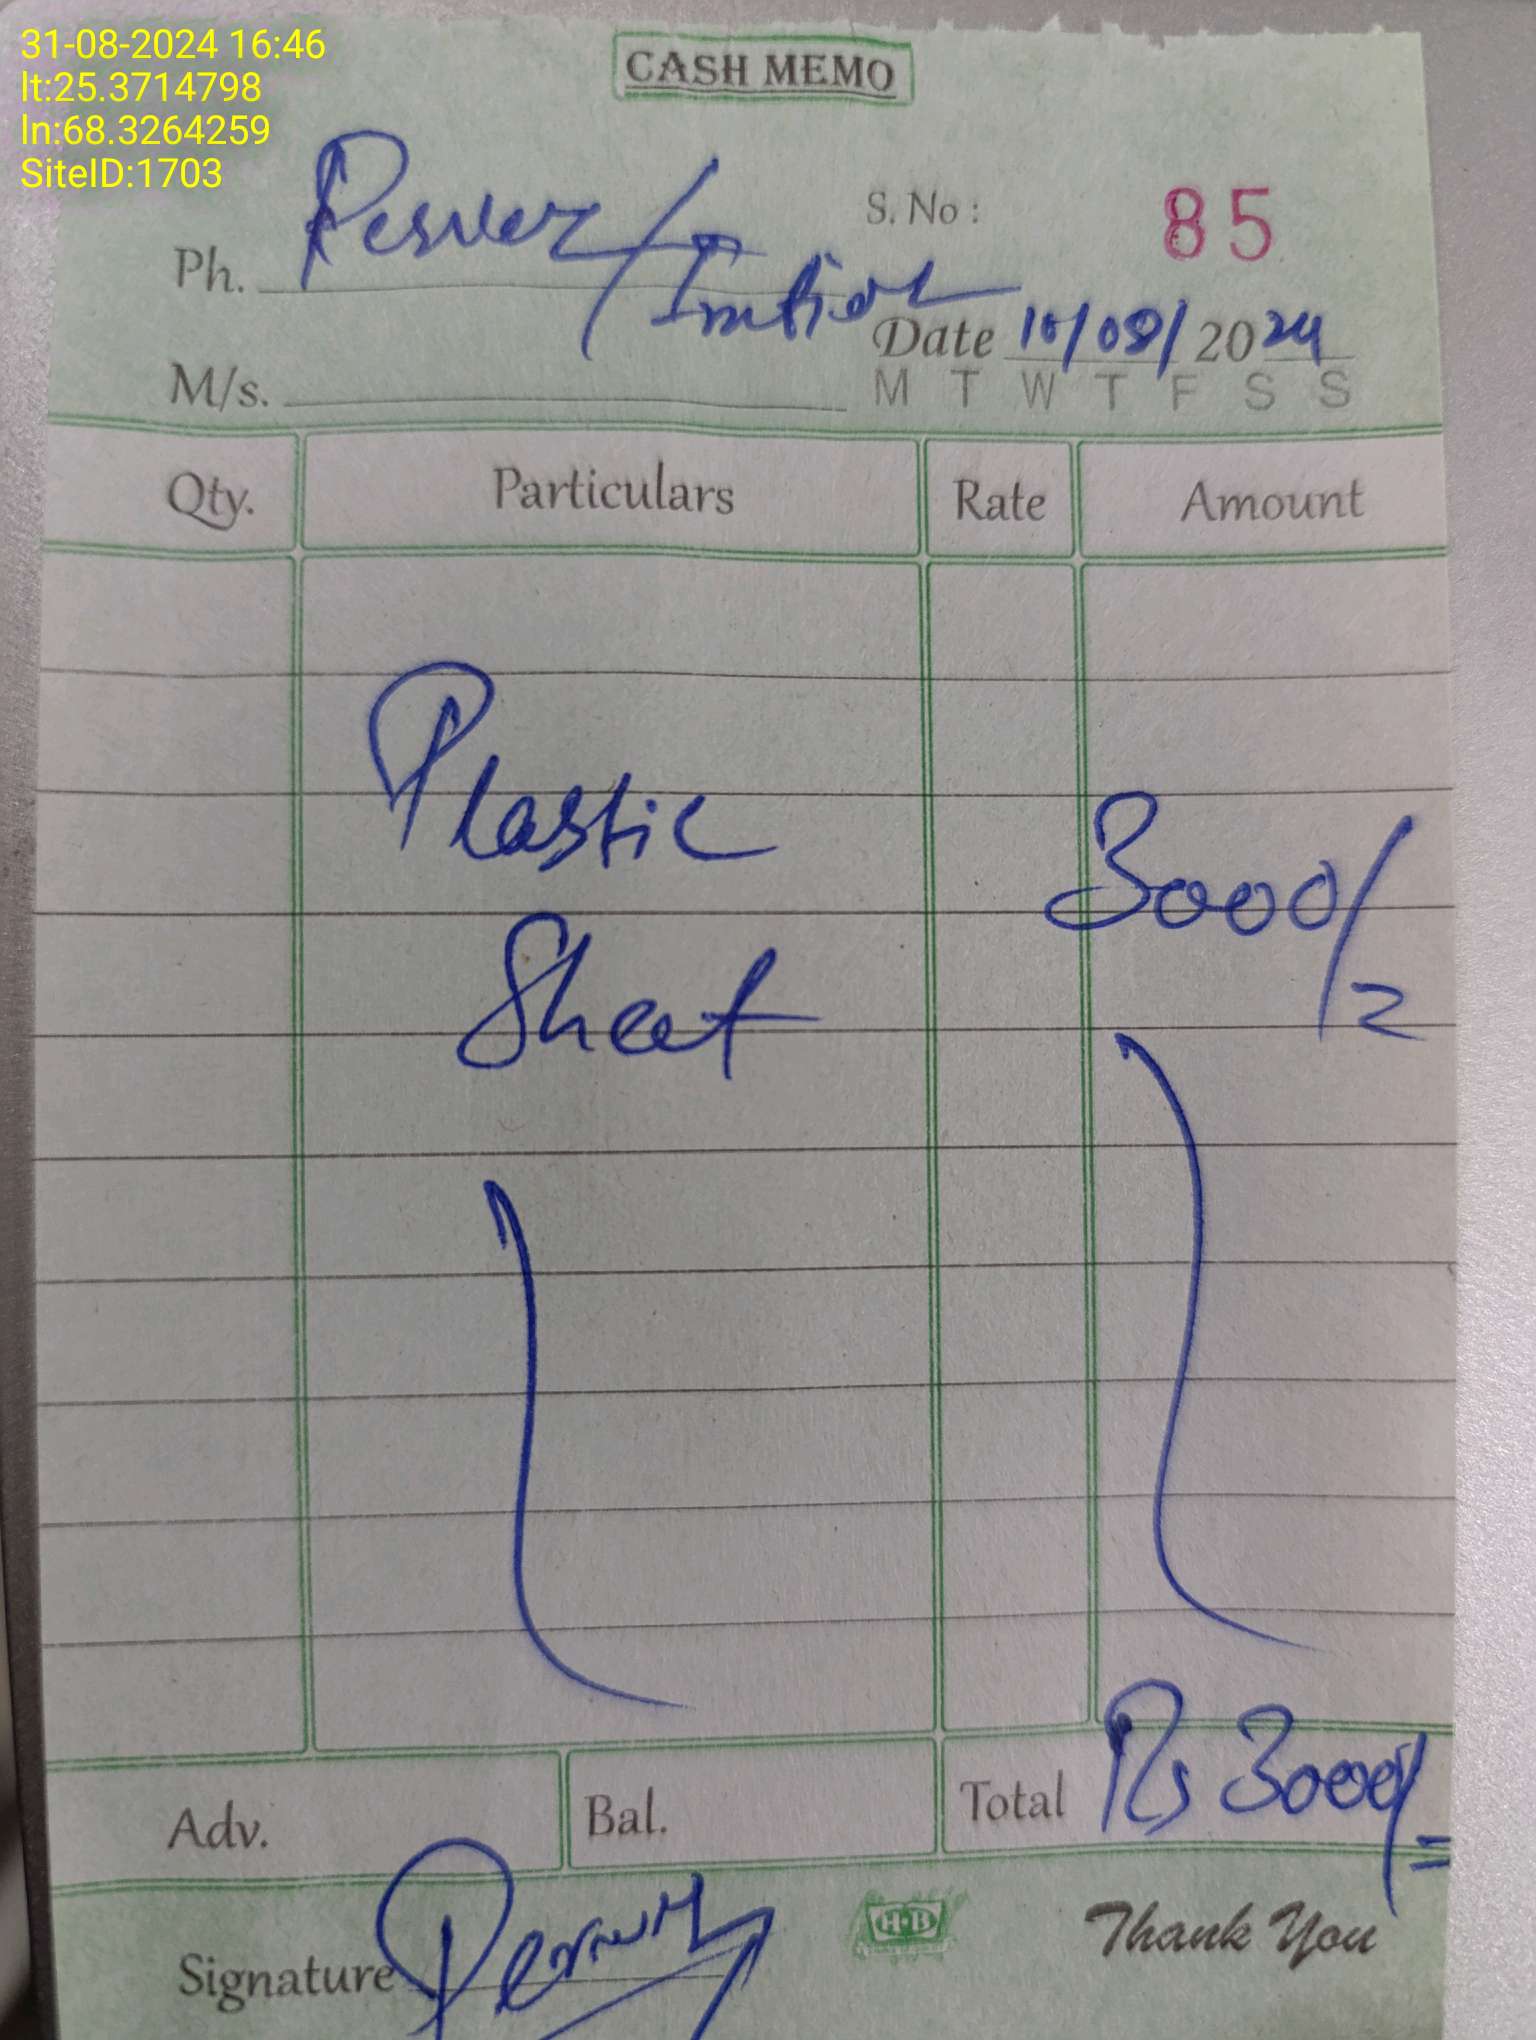 31-08-2024 16:46
lt:25.3714798
ln:68.3264259
SiteID:1703
CASH MEMO
S. No : 85
Ph.
Date 10/08/2024
M/s.
M T W T F S S
Qty. Particulars Rate Amount
Plastic 3000/=
Sheet
Adv. Bal. Total Rs 3000/=
H-B
Signature Thank You